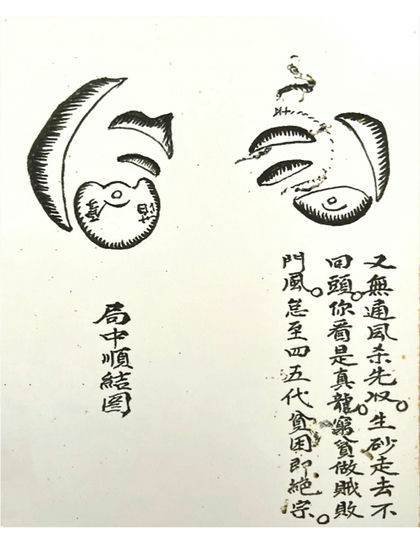 又無通风杀先収。生砂走去不
回頭。你看是真龍。窮貧做賊敗
門風。怠至四五代貧困即絕宗。
局中順結图